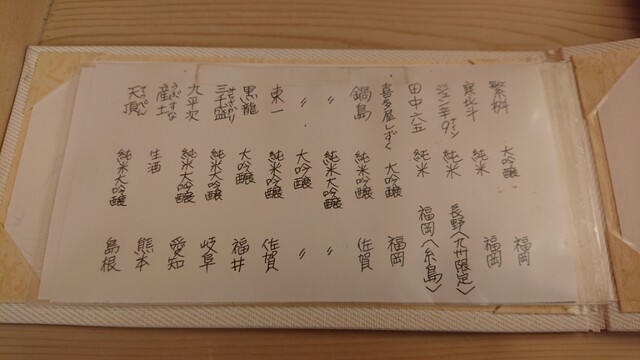 繁桝 大吟醸 福岡
寒北斗 純米 福岡
純米 長野〈九州限定〉
田中六五 純米 福岡〈糸島〉
喜多屋しずく 大吟醸 福岡
鍋島 純米吟醸 佐賀
〃 純米大吟醸 〃
〃 大吟醸 〃
東一 純米吟醸 佐賀
黒龍 大吟醸 福井
三千盛 純米大吟醸 岐阜
九平次 純米大吟醸 愛知
産土 うぶすな 生酒 熊本
天頂 てっぺん 純米大吟醸 島根